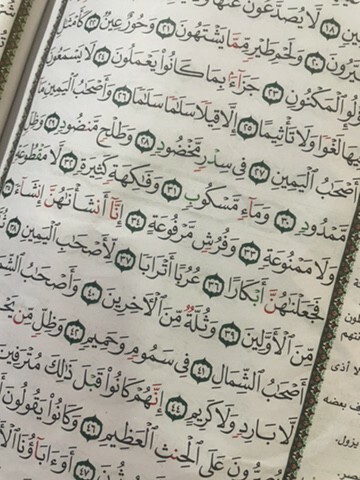 ١٨ لَّا يُصَدَّعُونَ عَنْهَا
٢٠ وَلَحْمِ طَيْرٍ مِّمَّا يَشْتَهُونَ ٢١ وَحُورٌ عِينٌ ٢٢ كَأَمْثَـٰلِ
ٱلْمَكْنُونِ ٢٣ جَزَآءًۢ بِمَا كَانُوا۟ يَعْمَلُونَ ٢٤ لَا يَسْمَعُونَ
فِيهَا لَغْوًا وَلَا تَأْثِيمًا ٢٥ إِلَّا قِيلًا سَلَـٰمًا سَلَـٰمًا ٢٦ وَأَصْحَـٰبُ ٱلْيَمِينِ مَآ
أَصْحَـٰبُ ٱلْيَمِينِ ٢٧ فِى سِدْرٍ مَّخْضُودٍ ٢٨ وَطَلْحٍ مَّنضُودٍ ٢٩ وَظِلٍّ
مَّمْدُودٍ ٣٠ وَمَآءٍ مَّسْكُوبٍ ٣١ وَفَـٰكِهَةٍ كَثِيرَةٍ ٣٢ لَّا مَقْطُوعَةٍ
وَلَا مَمْنُوعَةٍ ٣٣ وَفُرُشٍ مَّرْفُوعَةٍ ٣٤ إِنَّآ أَنشَأْنَـٰهُنَّ إِنشَآءً
فَجَعَلْنَـٰهُنَّ أَبْكَارًا ٣٦ عُرُبًا أَتْرَابًا ٣٧ لِّأَصْحَـٰبِ ٱلْيَمِينِ ٣٨
مِّنَ ٱلْأَوَّلِينَ ٣٩ وَثُلَّةٌ مِّنَ ٱلْـَٔاخِرِينَ ٤٠ وَأَصْحَـٰبُ
أَصْحَـٰبُ ٱلشِّمَالِ ٤١ فِى سَمُومٍ وَحَمِيمٍ ٤٢ وَظِلٍّ مِّن
لَّا بَارِدٍ وَلَا كَرِيمٍ ٤٤ إِنَّهُمْ كَانُوا۟ قَبْلَ ذَٰلِكَ مُتْرَفِينَ
عَلَى ٱلْحِنثِ ٱلْعَظِيمِ ٤٦ وَكَانُوا۟ يَقُولُونَ
٤٧ أَوَءَابَآؤُنَا
بعضه
يزول.